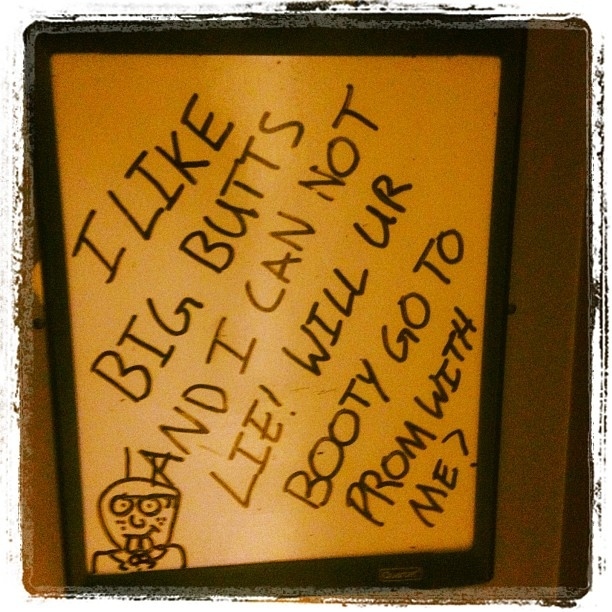 I LIKE
BIG BUTTS
AND I CAN NOT
LIE! WILL UR
BOOTY GO TO
PROM WITH
ME?